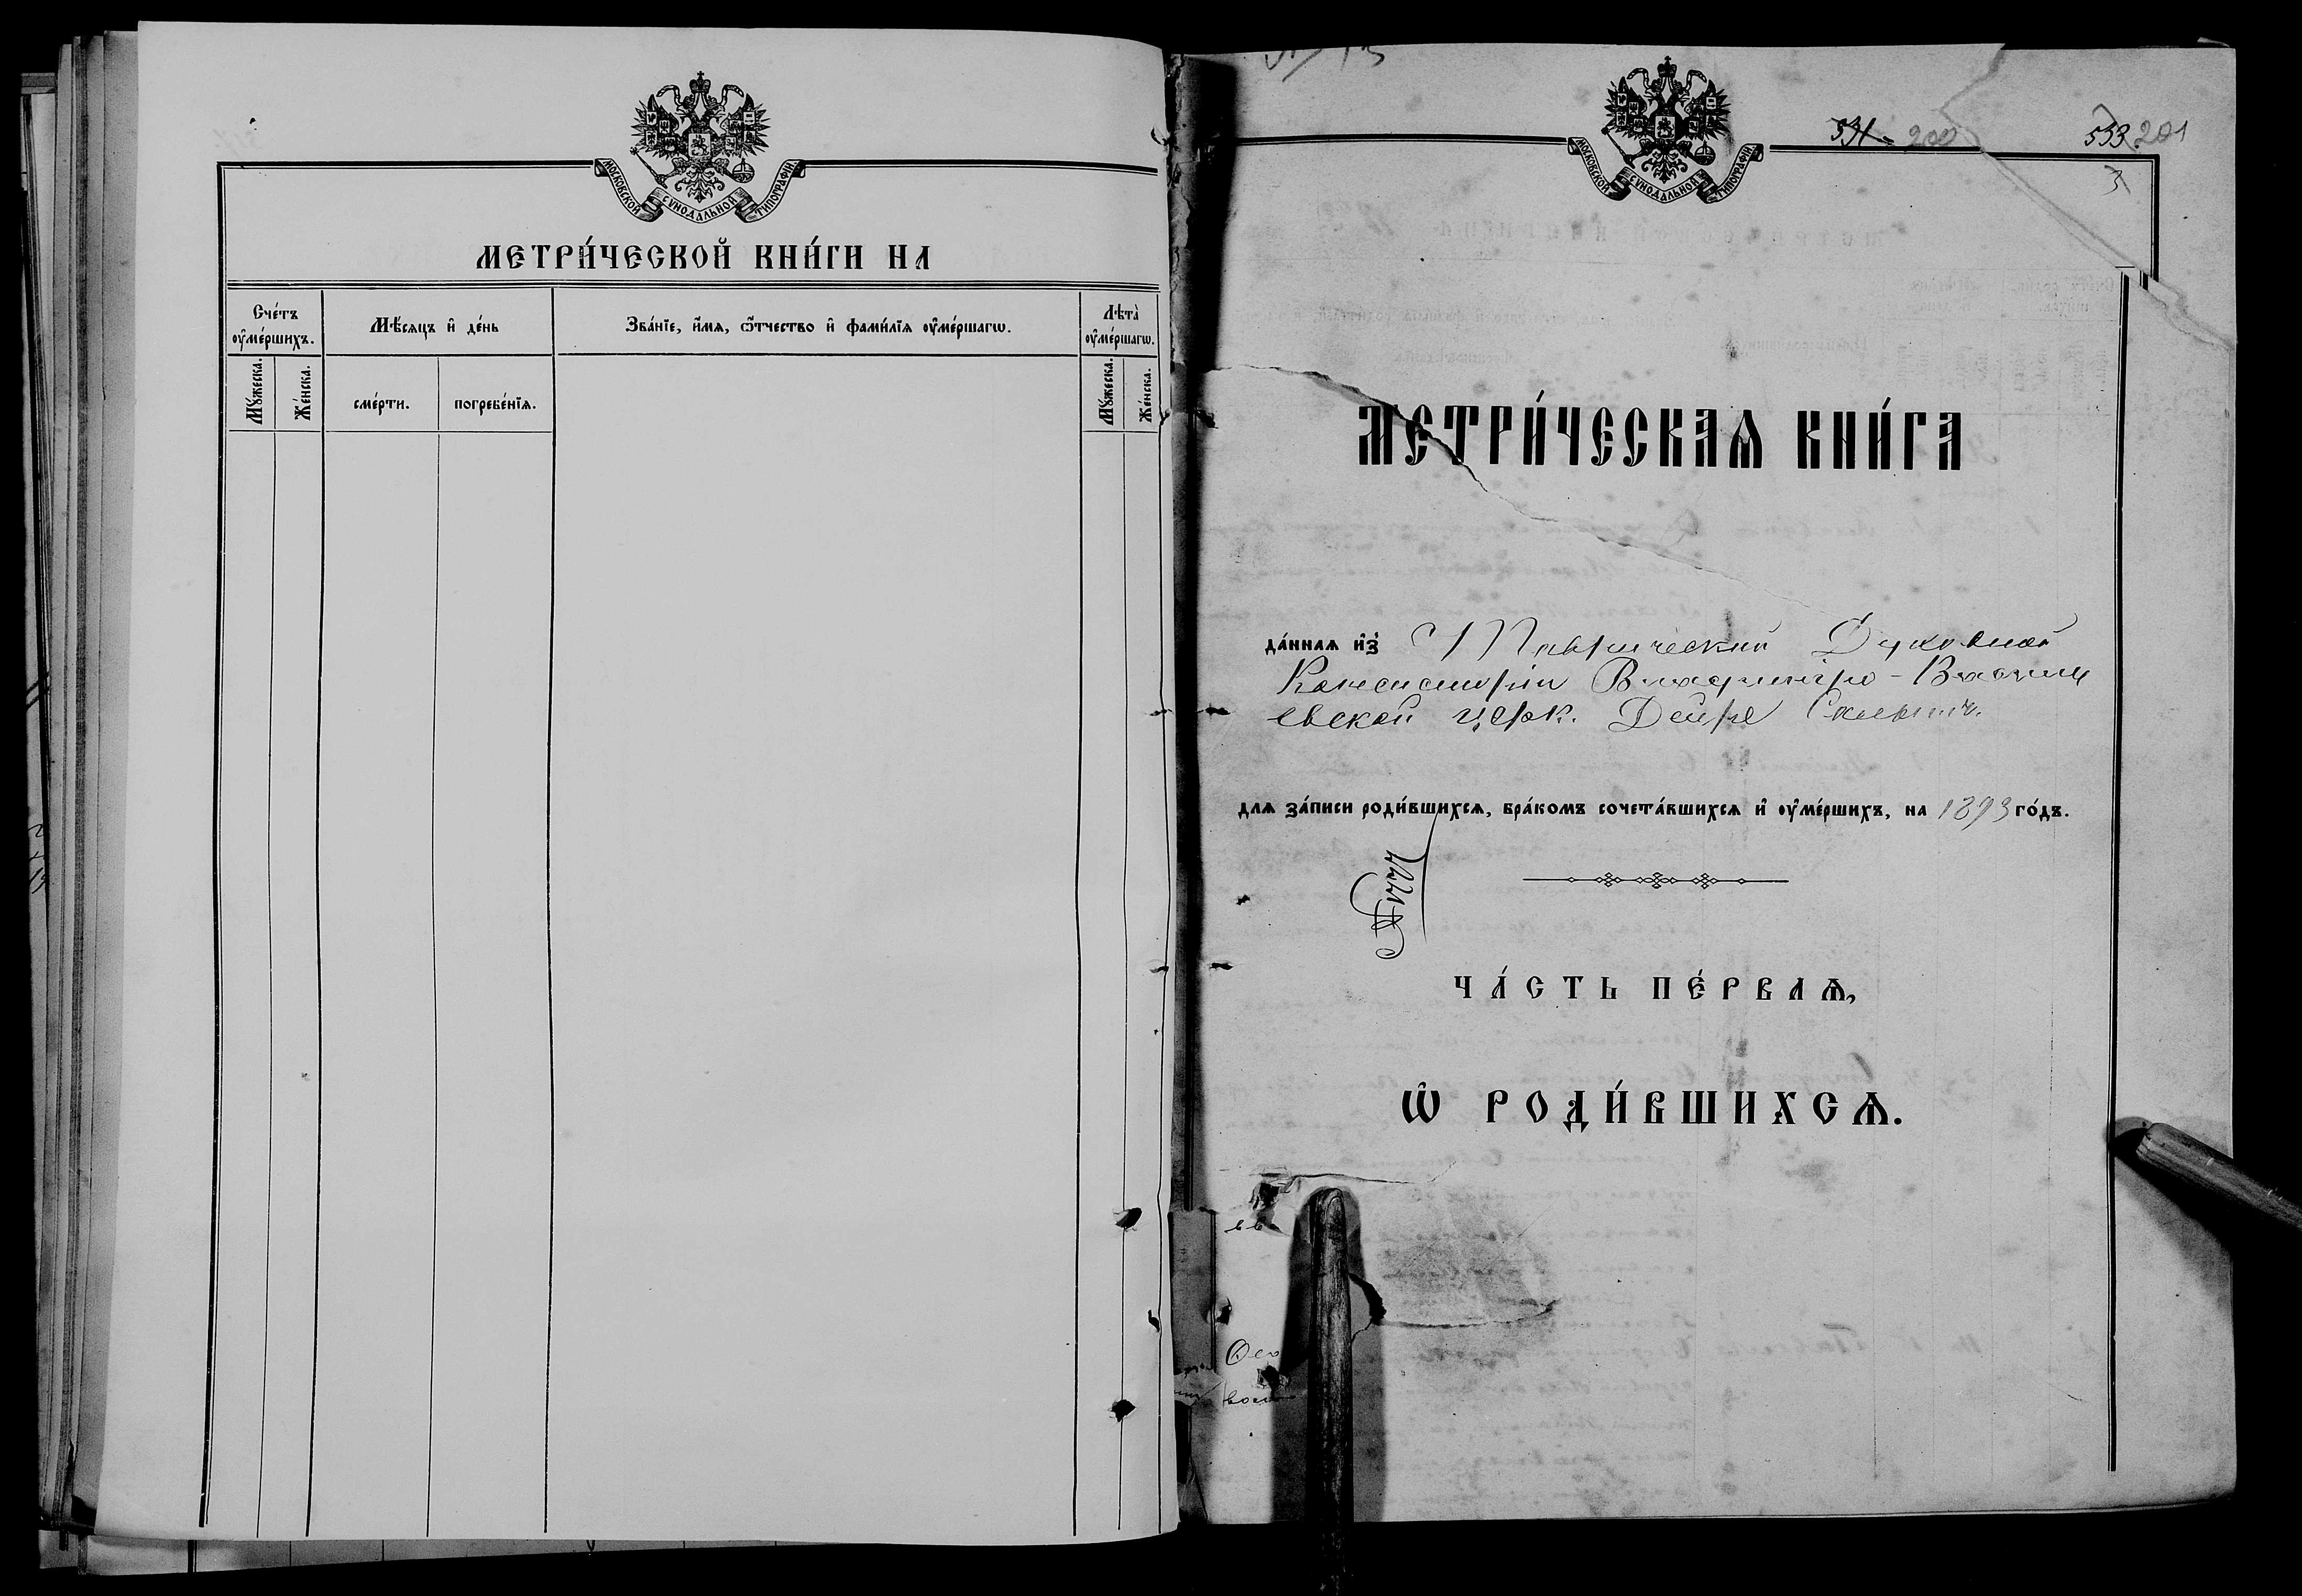 МОСКОВСКОЙ СѴНОДАЛЬНОЙ ТИПОГРАФІИ
МЕТРИ́ЧЕСКОЙ КНИ́ГИ НА
Сче́тъ ᲂу҆ме́ршихъ.
Мѣ́сяцъ и҆ де́нь
Зва́нїе, и҆́мѧ, ѻ҆́тчество и҆ фамилїѧ ᲂу҆ме́ршагѡ.
Лѣта̀ ᲂу҆ме́ршагѡ.
Мꙋ́жеска.
Же́нска.
сме́рти.
погребе́нїѧ.
Мꙋ́жеска.
Же́нска.
200
533 201
3
МОСКОВСКОЙ СѴНОДАЛЬНОЙ ТИПОГРАФІИ
МЕТРИ́ЧЕСКАѦ КНИ́ГА
да́ннаѧ и҆з̾ Таврической Духовной
Консисторіи
евской церк.
длѧ за́писи роди́вшихсѧ, бра́комъ сочета́вшихсѧ и҆ ᲂу҆ме́ршихъ, на 1893 го́дъ.
ЧА́СТЬ ПЕ́РВАѦ,
Ѡ҆ РОДИ́ВШИХСѦ.